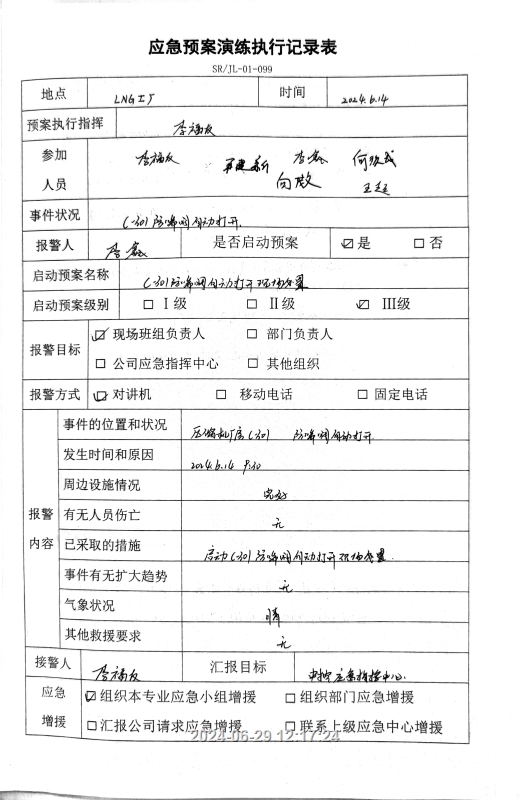 应急预案演练执行记录表
SR/JL-01-099
地点 LNG工厂 时间 2024.6.14
预案执行指挥 李福友
参加人员 李福友 李鑫
向毅 王超
事件状况 C-301防喘阀自动打开.
报警人 李鑫 是否启动预案 ☑是 □否
启动预案名称 C-301防喘阀自动打开现场处置
启动预案级别 □Ⅰ级 □Ⅱ级 ☑Ⅲ级
报警目标 ☑现场班组负责人 □部门负责人
□公司应急指挥中心 □其他组织
报警方式 ☑对讲机 □移动电话 □固定电话
报警内容
事件的位置和状况 压缩机厂房C-301 防喘阀自动打开.
发生时间和原因 2024.6.14 9:30
周边设施情况 完好
有无人员伤亡 无
已采取的措施 启动C-301防喘阀自动打开现场处置.
事件有无扩大趋势 无
气象状况 晴
其他救援要求 无
接警人 李福友 汇报目标 中控应急指挥中心.
应急增援 ☑组织本专业应急小组增援 □组织部门应急增援
□汇报公司请求应急增援 □联系上级应急中心增援
2024-06-29 12:17:24